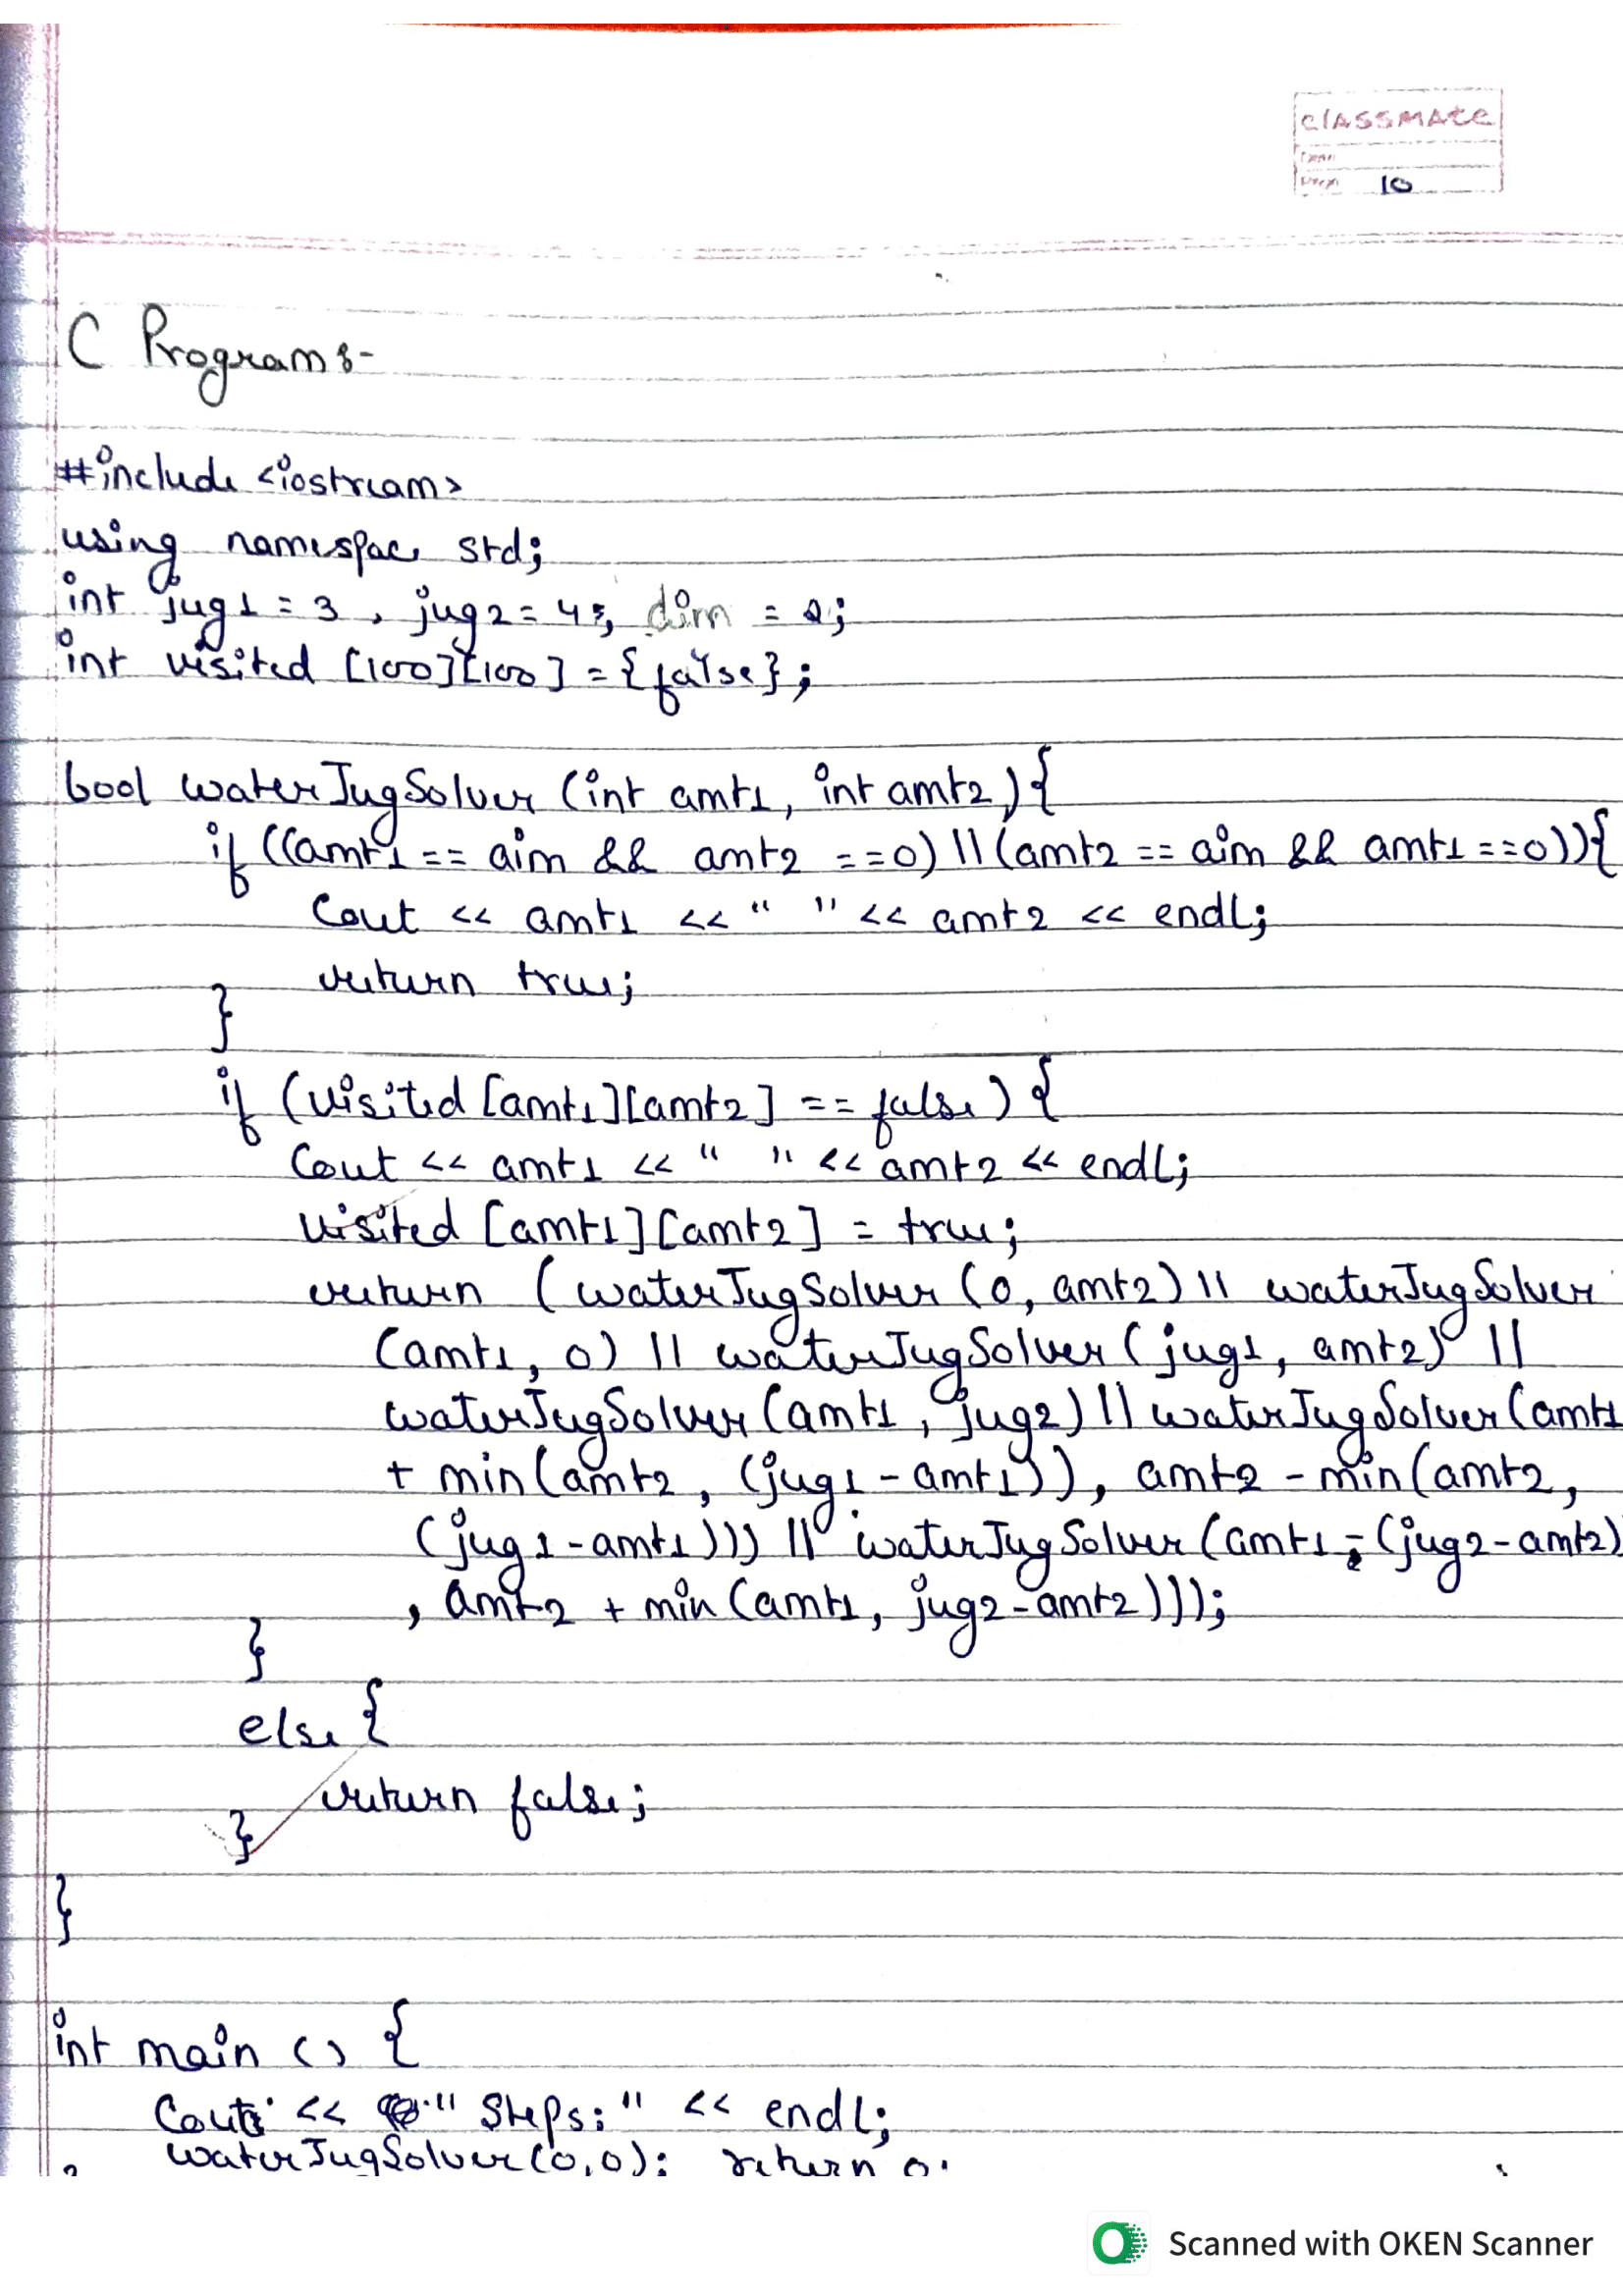 classmate
Page 10
C Program :-
#include <iostream>
using namespace std;
int jug1 = 3, jug2 = 4, aim = 2;
int visited [100][100] = {false};
bool waterJugSolver (int amt1, int amt2) {
if ((amt1 == aim && amt2 ==0) || (amt2 == aim && amt1 ==0)){
Cout << amt1 << " " << amt2 << endl;
return true;
}
if (visited [amt1][amt2] == false) {
Cout << amt1 << " " << amt2 << endl;
visited [amt1][amt2] = true;
return (waterJugSolver (0, amt2) || waterJugSolver
(amt1, 0) || waterJugSolver (jug1, amt2) ||
waterJugSolver (amt1, jug2) || waterJugSolver (amt1
+ min(amt2, (jug1 - amt1)), amt2 - min(amt2,
(jug1-amt1))) || waterJugSolver (amt1 - (jug2-amt2)
, amt2 + min (amt1, jug2-amt2)));
}
else {
return false;
}
}
int main () {
Cout << "Steps:" << endl;
waterJugSolver (0,0); return 0;
Scanned with OKEN Scanner